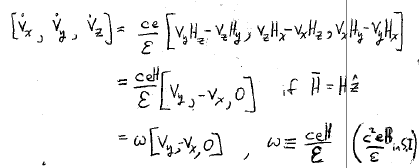 [v̇x, v̇y, v̇z] = ce/ℰ [vyHz-vzHy, vzHx-vxHz, vxHy-vyHx]
= ceH/ℰ [vy, -vx, 0] if H̄ = Hẑ
= ω[vy, -vx, 0], ω ≡ ceH/ℰ (c²eB/ε in S.I.)